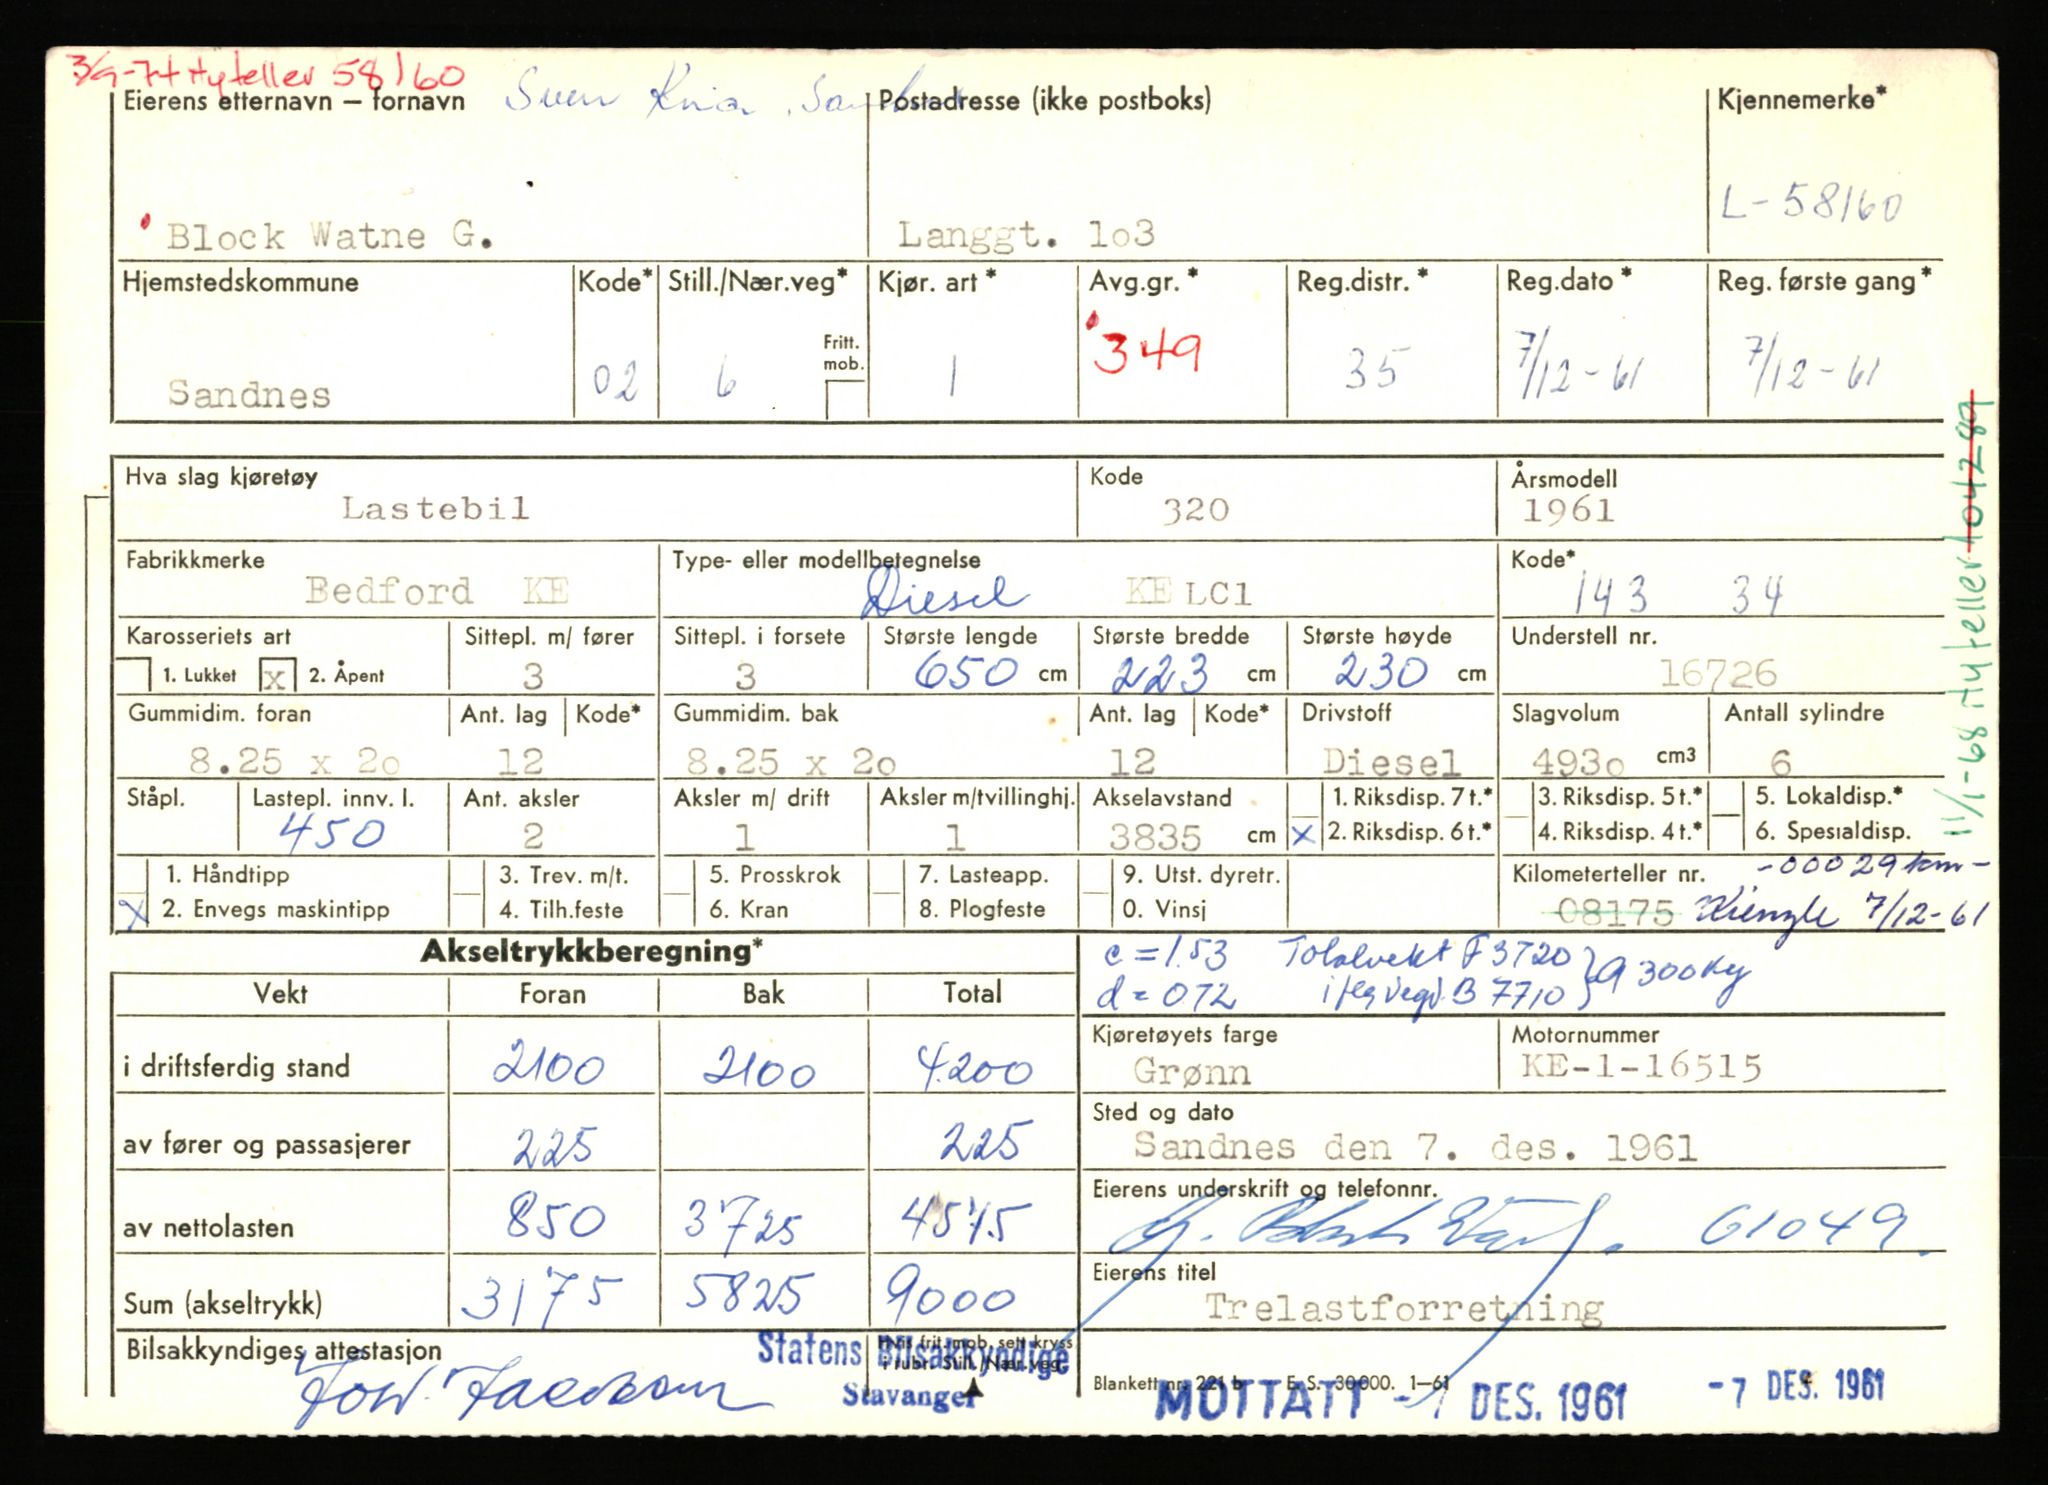 3/9-74 Ny teller 58160
Eierens etternavn – fornavn Sven Postadresse (ikke postboks) Kjennemerke*
Block Watne G. Langgt. 1o3 L-58160
Hjemstedskommune Kode* Still./Nær.veg* Kjør. art* Avg.gr.* Reg.distr.* Reg.dato* Reg. første gang*
Fritt. mob.
Sandnes 02 6 1 349 35 7/12-61 7/12-61
Hva slag kjøretøy Kode Årsmodell
Lastebil 320 1961
Fabrikkmerke Type- eller modellbetegnelse Kode*
Bedford KE Diesel KE LC1 143 34
Karosseriets art Sittepl. m/ fører Sittepl. i forsete Største lengde Største bredde Største høyde Understell nr.
1. Lukket x 2. Åpent 3 3 650 cm 223 cm 230 cm 16726
Gummidim. foran Ant. lag Kode* Gummidim. bak Ant. lag Kode* Drivstoff Slagvolum Antall sylindre
8.25 x 2o 12 8.25 x 2o 12 Diesel 493o cm3 6
Ståpl. Lastepl. innv. l. Ant. aksler Aksler m/ drift Aksler m/tvillinghj. Akselavstand 1. Riksdisp. 7 t.* 3. Riksdisp. 5 t.* 5. Lokaldisp.*
450 2 1 1 3835 cm x 2. Riksdisp. 6 t.* 4. Riksdisp. 4 t.* 6. Spesialdisp.
1. Håndtipp 3. Trev. m/t. 5. Prosskrok 7. Lasteapp. 9. Utst. dyretr. Kilometerteller nr. -00029 km-
x 2. Envegs maskintipp 4. Tilh.feste 6. Kran 8. Plogfeste 0. Vinsj 08175 Kienzle 7/12-61
11/1-68 Ny teller 104289
Akseltrykkberegning*
c = 1.53 Totalvekt F 3720 } 9300 kg
d = 072 B 7710
Vekt Foran Bak Total
Kjøretøyets farge Motornummer
i driftsferdig stand 2100 2100 4.200
Grønn KE-1-16515
Sted og dato
av fører og passasjerer 225 225
Sandnes den 7. des. 1961
Eierens underskrift og telefonnr.
av nettolasten 850 3725 4575
61049.
Eierens titel
Sum (akseltrykk) 3175 5825 9000
Trelastforretning
Bilsakkyndiges attestasjon
Hvis frit. mob. sett kryss
i rubr. Still./Nær.veg.
Statens Bilsakkyndige
Stavanger
Blankett nr. 221 b E. S. 30000. 1–61
MOTTATT DES. 1961
-7 DES. 1961